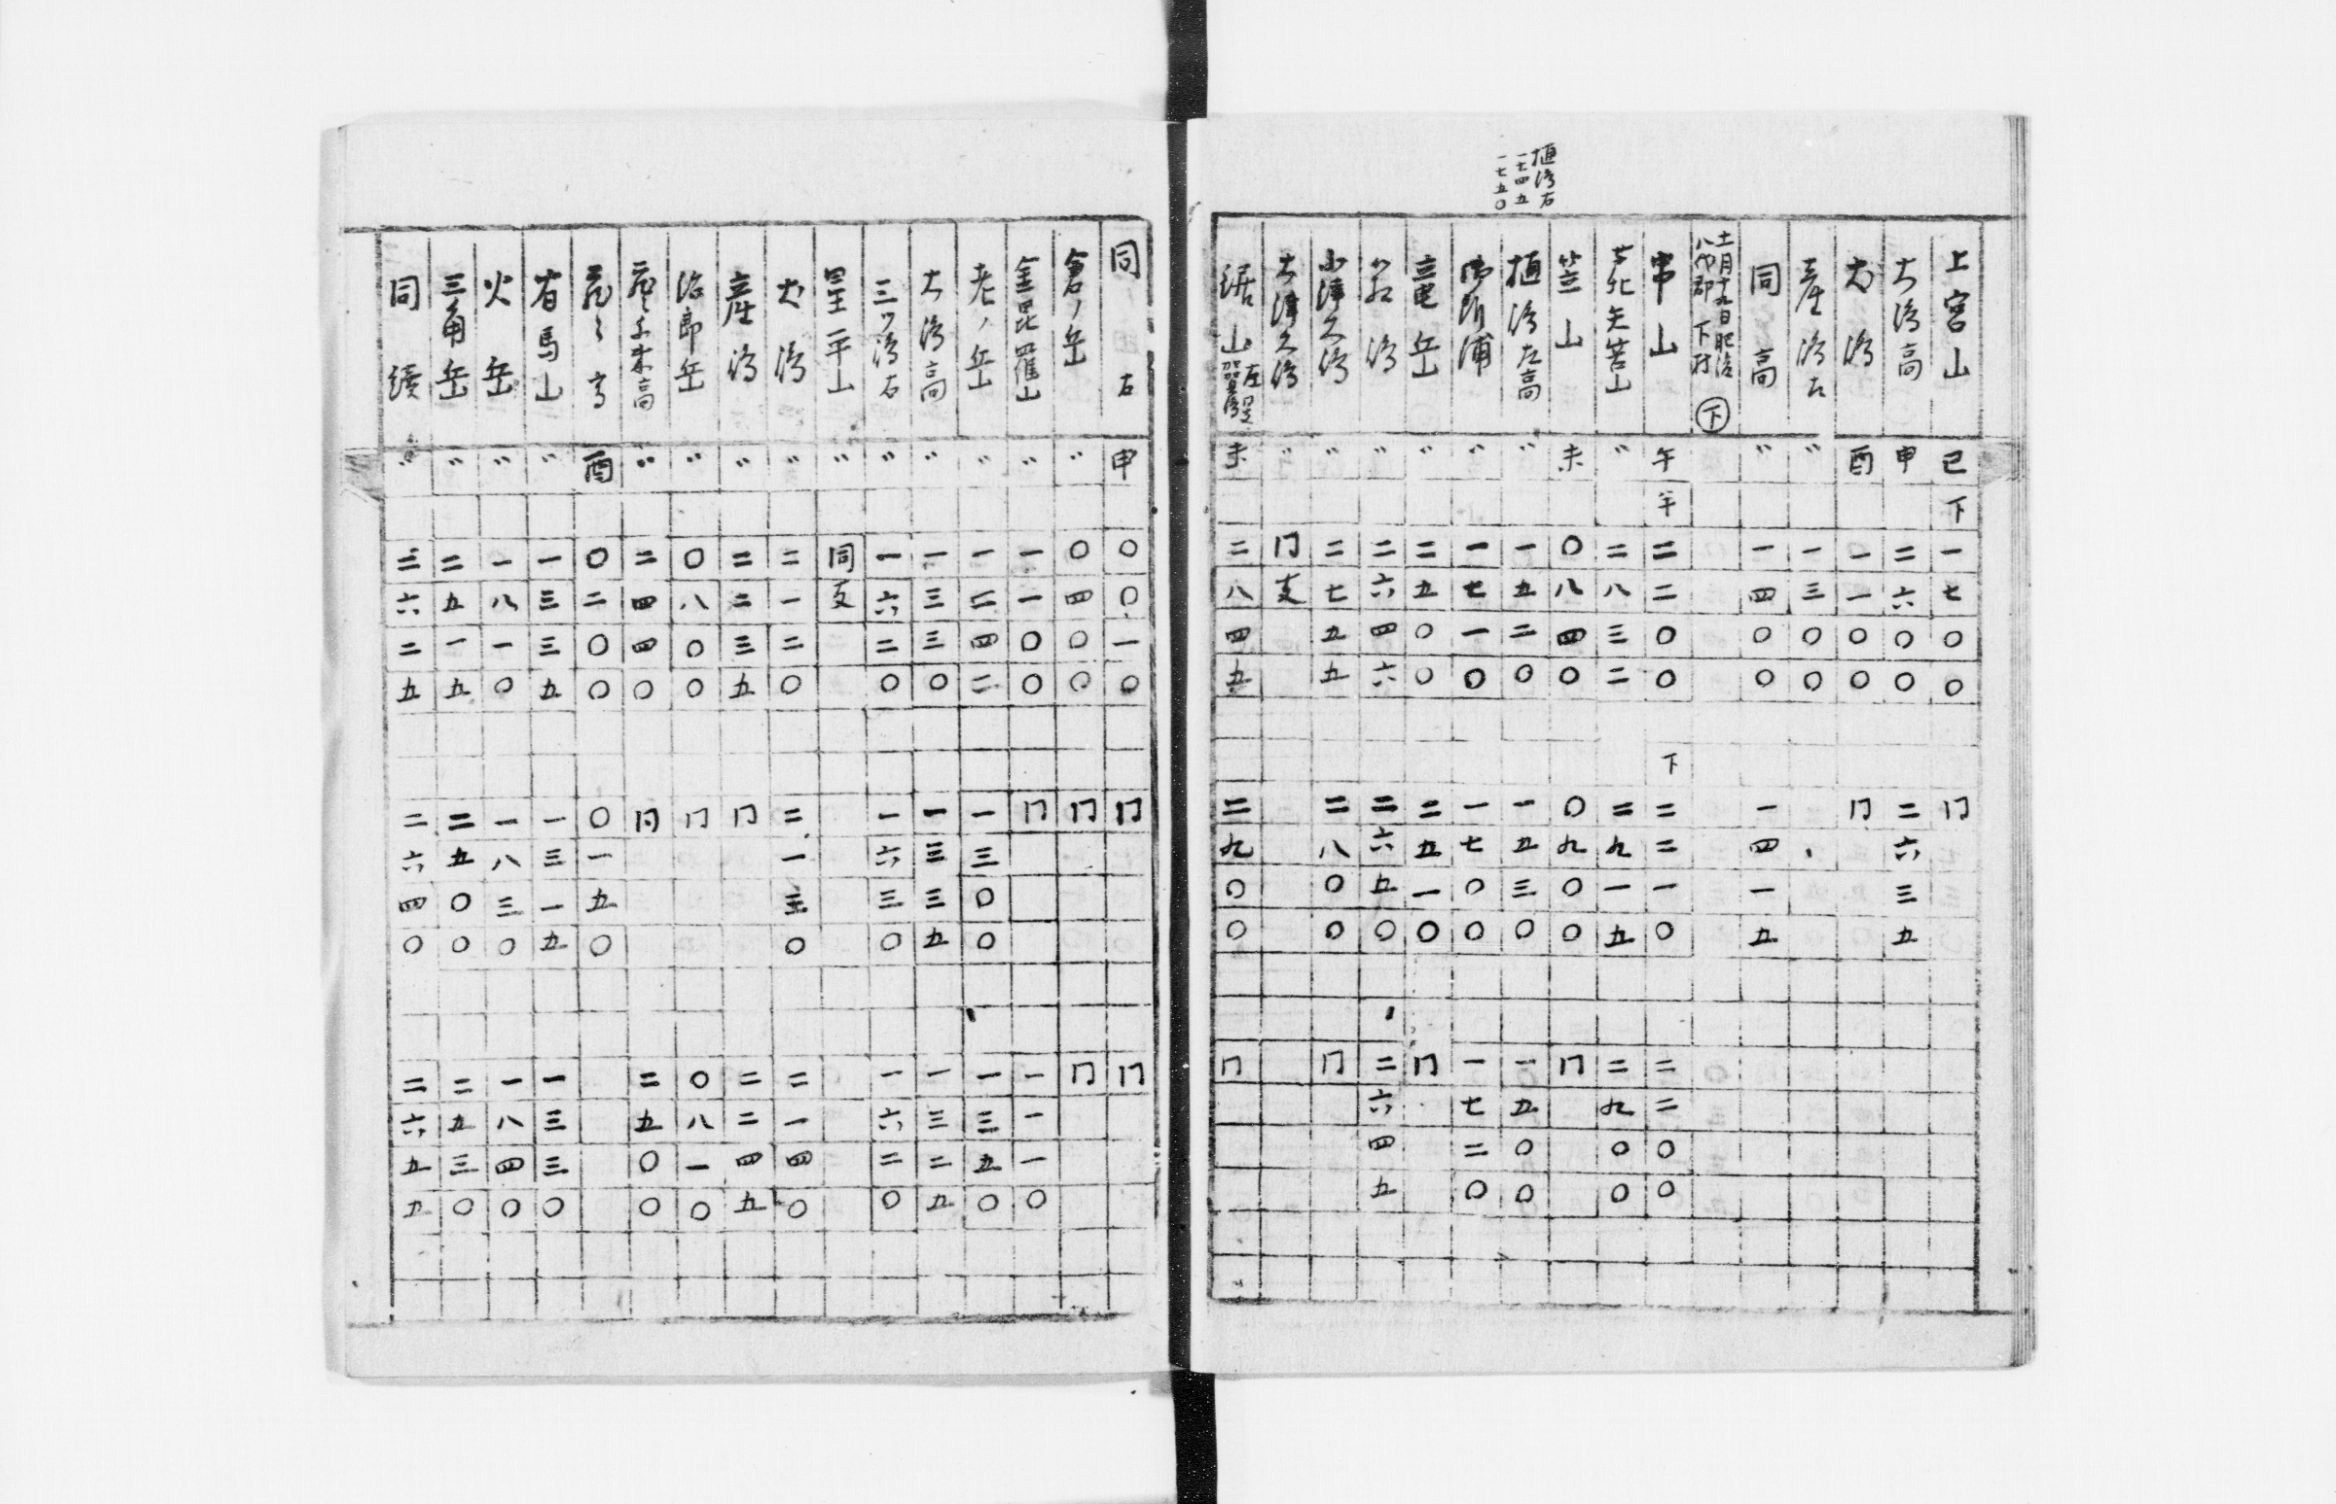 植湾右
一七四五
一七五〇
上宮山 巳 下 一七〇〇 冂
大湾高 申 二六〇〇 二六三五
犬湾 酉 一一〇〇 冂
産湾右 〃 一三〇〇
同高 〃 一四〇〇 一四一五
十一月十九日肥後
八代郡 下村 下
串山 午 半 二二〇〇 下 二二一〇 二二〇〇
矢筈山 〃 二八三二 二九一五 二九〇〇
笠山 未 〇八四〇 〇九〇〇 冂
植湾左高 〃 一五二〇 一五三〇 一五〇〇
御所浦 〃 一七一〇 一七〇〇 一七二〇
竜岳 〃 二五〇〇 二五一〇 冂
湾 〃 二六四六 二六五〇 二六四五
小津久湾 〃 二七五五 二八〇〇 冂
大津久湾 〃 冂支
山 未 二八四五 二九〇〇 冂
同 右 申 〇〇一〇 冂 冂
倉ノ岳 〃 〇四〇〇 冂 冂
金毘羅山 〃 一一〇〇 冂 一一一〇
老ノ岳 〃 一二四二 一三〇〇 一三五〇
大湾高 〃 一三三〇 一三三五 一三二五
三ツ湾右 〃 一六二〇 一六三〇 一六二〇
平山 〃 同支
犬湾 〃 二一二〇 二一三〇 二一四〇
産湾 〃 二二三五 冂 二二四五
治郎岳 〃 〇八〇〇 冂 〇八一〇
高 〃 二四四〇 冂 二五〇〇
酉 〇二〇〇 〇一五〇
有馬山 〃 一三三五 一三一五 一三三〇
火岳 〃 一八一〇 一八三〇 一八四〇
三角岳 〃 二五一五 二五〇〇 二五三〇
同 續 〃 二六二五 二六四〇 二六五五